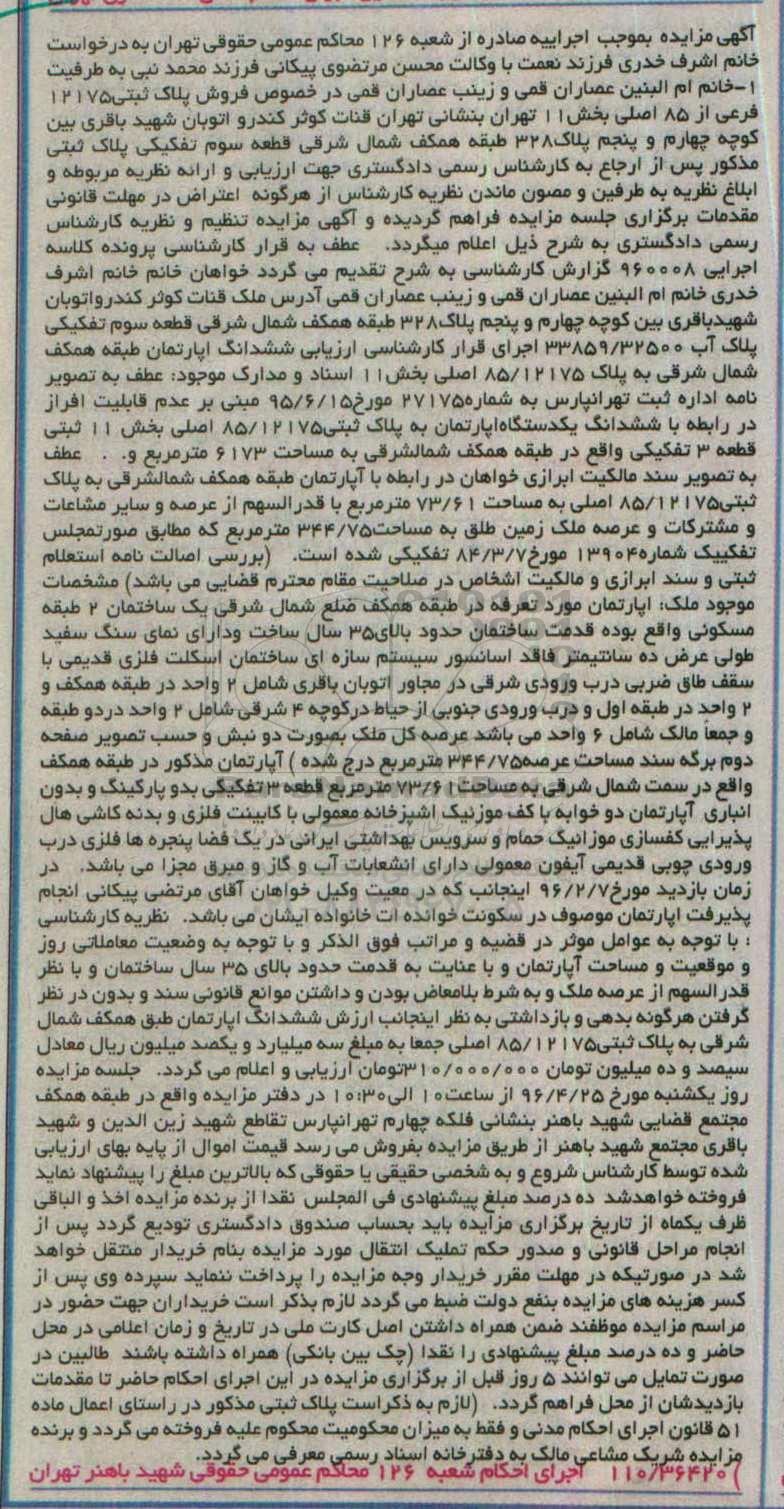 آگهی مزایده بموجب اجراییه صادره از شعبه ۱۲۶ محاکم عمومی حقوقی تهران به درخواست
خانم اشرف خدری فرزند نعمت با وکالت محسن مرتضوی پیکانی فرزند محمد نبی به طرفیت
۱-خانم ام البنین عصاران قمی و زینب عصاران قمی در خصوص فروش پلاک ثبتی۱۲۱۷۵
فرعی از ۸۵ اصلی بخش۱۱ تهران بنشانی تهران قنات کوثر کندرو اتوبان شهید باقری بین
کوچه چهارم و پنجم پلاک۳۲۸ طبقه همکف شمال شرقی قطعه سوم تفکیکی پلاک ثبتی
مذکور پس از ارجاع به کارشناس رسمی دادگستری جهت ارزیابی و ارائه نظریه مربوطه و
ابلاغ نظریه به طرفین و مصون ماندن نظریه کارشناس از هرگونه اعتراض در مهلت قانونی
مقدمات برگزاری جلسه مزایده فراهم گردیده و آگهی مزایده تنظیم و نظریه کارشناس
رسمی دادگستری به شرح ذیل اعلام میگردد. عطف به قرار کارشناسی پرونده کلاسه
اجرایی ۹۶۰۰۰۸ گزارش کارشناسی به شرح تقدیم می گردد خواهان خانم خانم اشرف
خدری خانم ام البنین عصاران قمی و زینب عصاران قمی آدرس ملک قنات کوثر کندرواتوبان
شهیدباقری بین کوچه چهارم و پنجم پلاک۳۲۸ طبقه همکف شمال شرقی قطعه سوم تفکیکی
پلاک آب ۳۳۸۵۹/۳۲۵۰۰ اجرای قرار کارشناسی ارزیابی ششدانگ اپارتمان طبقه همکف
شمال شرقی به پلاک ۸۵/۱۲۱۷۵ اصلی بخش۱۱ اسناد و مدارک موجود: عطف به تصویر
نامه اداره ثبت تهرانپارس به شماره۲۷۱۷۵ مورخ۹۵/۶/۱۵ مبنی بر عدم قابلیت افراز
در رابطه با ششدانگ یکدستگاه‌اپارتمان به پلاک ثبتی۸۵/۱۲۱۷۵ اصلی بخش ۱۱ ثبتی
قطعه ۳ تفکیکی واقع در طبقه همکف شمالشرقی به مساحت ۶۱۷۳ مترمربع و. . عطف
به تصویر سند مالکیت ابرازی خواهان در رابطه با آپارتمان طبقه همکف شمالشرقی به پلاک
ثبتی۸۵/۱۲۱۷۵ اصلی به مساحت ۷۳/۶۱ مترمربع با قدرالسهم از عرصه و سایر مشاعات
و مشترکات و عرصه ملک زمین طلق به مساحت۳۴۴/۷۵ مترمربع که مطابق صورتمجلس
تفکییک شماره۱۳۹۰۴ مورخ۸۴/۳/۷ تفکیکی شده است. (بررسی اصالت نامه استعلام
ثبتی و سند ابرازی و مالکیت اشخاص در صلاحیت مقام محترم قضایی می باشد) مشخصات
موجود ملک: اپارتمان مورد تعرفه در طبقه همکف ضلع شمال شرقی یک ساختمان ۲ طبقه
مسکونی واقع بوده قدمت ساختمان حدود بالای۳۵ سال ساخت ودارای نمای سنگ سفید
طولی عرض ده سانتیمتر فاقد اسانسور سیستم سازه ای ساختمان اسکلت فلزی قدیمی با
سقف طاق ضربی درب ورودی شرقی در مجاور اتوبان باقری شامل ۲ واحد در طبقه همکف و
۲ واحد در طبقه اول و درب ورودی جنوبی از حیاط درکوچه ۴ شرقی شامل ۲ واحد دردو طبقه
و جمعا مالک شامل ۶ واحد می باشد عرصه کل ملک بصورت دو نبش و حسب تصویر صفحه
دوم برگه سند مساحت عرصه۳۴۴/۷۵ مترمربع درج شده ) آپارتمان مذکور در طبقه همکف
واقع در سمت شمال شرقی به مساحت۷۳/۶۱ مترمربع قطعه ۳ تفکیکی بدو پارکینگ و بدون
انباری آپارتمان دو خوابه با کف موزئیک اشپزخانه معمولی با کابینت فلزی و بدنه کاشی هال
پذیرایی کفسازی موزائیک حمام و سرویس بهداشتی ایرانی در یک فضا پنجره ها فلزی درب
ورودی چوبی قدیمی آیفون معمولی دارای انشعابات آب و گاز و مبرق مجزا می باشد. در
زمان بازدید مورخ۹۶/۲/۷ اینجانب که در معیت وکیل خواهان آقای مرتضی پیکانی انجام
پذیرفت اپارتمان موصوف در سکونت خوانده ات خانواده ایشان می باشد. نظریه کارشناسی
: با توجه به عوامل موثر در قضیه و مراتب فوق الذکر و با توجه به وضعیت معاملاتی روز
و موقعیت و مساحت آپارتمان و با عنایت به قدمت حدود بالای ۳۵ سال ساختمان و با نظر
قدرالسهم از عرصه ملک و به شرط بلامعاض بودن و داشتن موانع قانونی سند و بدون در نظر
گرفتن هرگونه بدهی و بازداشتی به نظر اینجانب ارزش ششدانگ اپارتمان طبق همکف شمال
شرقی به پلاک ثبتی۸۵/۱۲۱۷۵ اصلی جمعا به مبلغ سه میلیارد و یکصد میلیون ریال معادل
سیصد و ده میلیون تومان ۳۱۰/۰۰۰/۰۰۰تومان ارزیابی و اعلام می گردد. جلسه مزایده
روز یکشنبه مورخ ۹۶/۴/۲۵ از ساعت۱۰ الی۱۰:۳۰ در دفتر مزایده واقع در طبقه همکف
مجتمع قضایی شهید باهنر بنشانی فلکه چهارم تهرانپارس تقاطع شهید زین الدین و شهید
باقری مجتمع شهید باهنر از طریق مزایده بفروش می رسد قیمت اموال از پایه بهای ارزیابی
شده توسط کارشناس شروع و به شخصی حقیقی یا حقوقی که بالاترین مبلغ را پیشنهاد نماید
فروخته خواهدشد ده درصد مبلغ پیشنهادی فی المجلس نقدا از برنده مزایده اخذ و الباقی
ظرف یکماه از تاریخ برگزاری مزایده باید بحساب صندوق دادگستری تودیع گردد پس از
انجام مراحل قانونی و صدور حکم تملیک انتقال مورد مزایده بنام خریدار منتقل خواهد
شد در صورتیکه در مهلت مقرر خریدار وجه مزایده را پرداخت ننماید سپرده وی پس از
کسر هزینه های مزایده بنفع دولت ضبط می گردد لازم بذکر است خریداران جهت حضور در
مراسم مزایده موظفند ضمن همراه داشتن اصل کارت ملی در تاریخ و زمان اعلامی در محل
حاضر و ده درصد مبلغ پیشنهادی را نقدا (چک بین بانکی) همراه داشته باشند طالبین در
صورت تمایل می توانند ۵ روز قبل از برگزاری مزایده در این اجرای احکام حاضر تا مقدمات
بازدیدشان از محل فراهم گردد. (لازم به ذکراست پلاک ثبتی مذکور در راستای اعمال ماده
۵۱ قانون اجرای احکام مدنی و فقط به میزان محکومیت محکوم علیه فروخته می گردد و برنده
مزایده شریک مشاعی مالک به دفترخانه اسناد رسمی معرفی می گردد.
۱۱۰/۳۶۴۲۰ ) اجرای احکام شعبه ۱۲۶ محاکم عمومی حقوقی شهید باهنر تهران